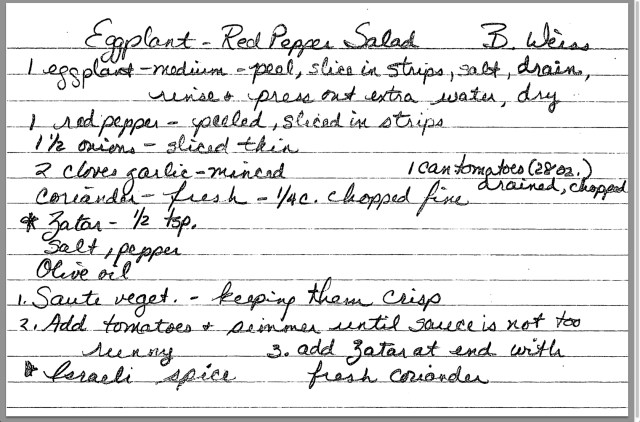 Eggplant - Red Pepper Salad B. Weiss
1 eggplant - medium - peel, slice in strips, salt, drain,
rinse & press out extra water, dry
1 red pepper - peeled, sliced in strips
1 1/2 onions - sliced thin
2 cloves garlic - minced 1 can tomatoes (28 oz.)
drained, chopped
Coriander - fresh - 1/4 c. chopped fine
* Zatar - 1/2 tsp.
Salt, pepper
Olive oil
1. Saute veget. - keeping them crisp
2. Add tomatoes & simmer until sauce is not too
runny 3. add Zatar at end with
* Israeli spice fresh coriander